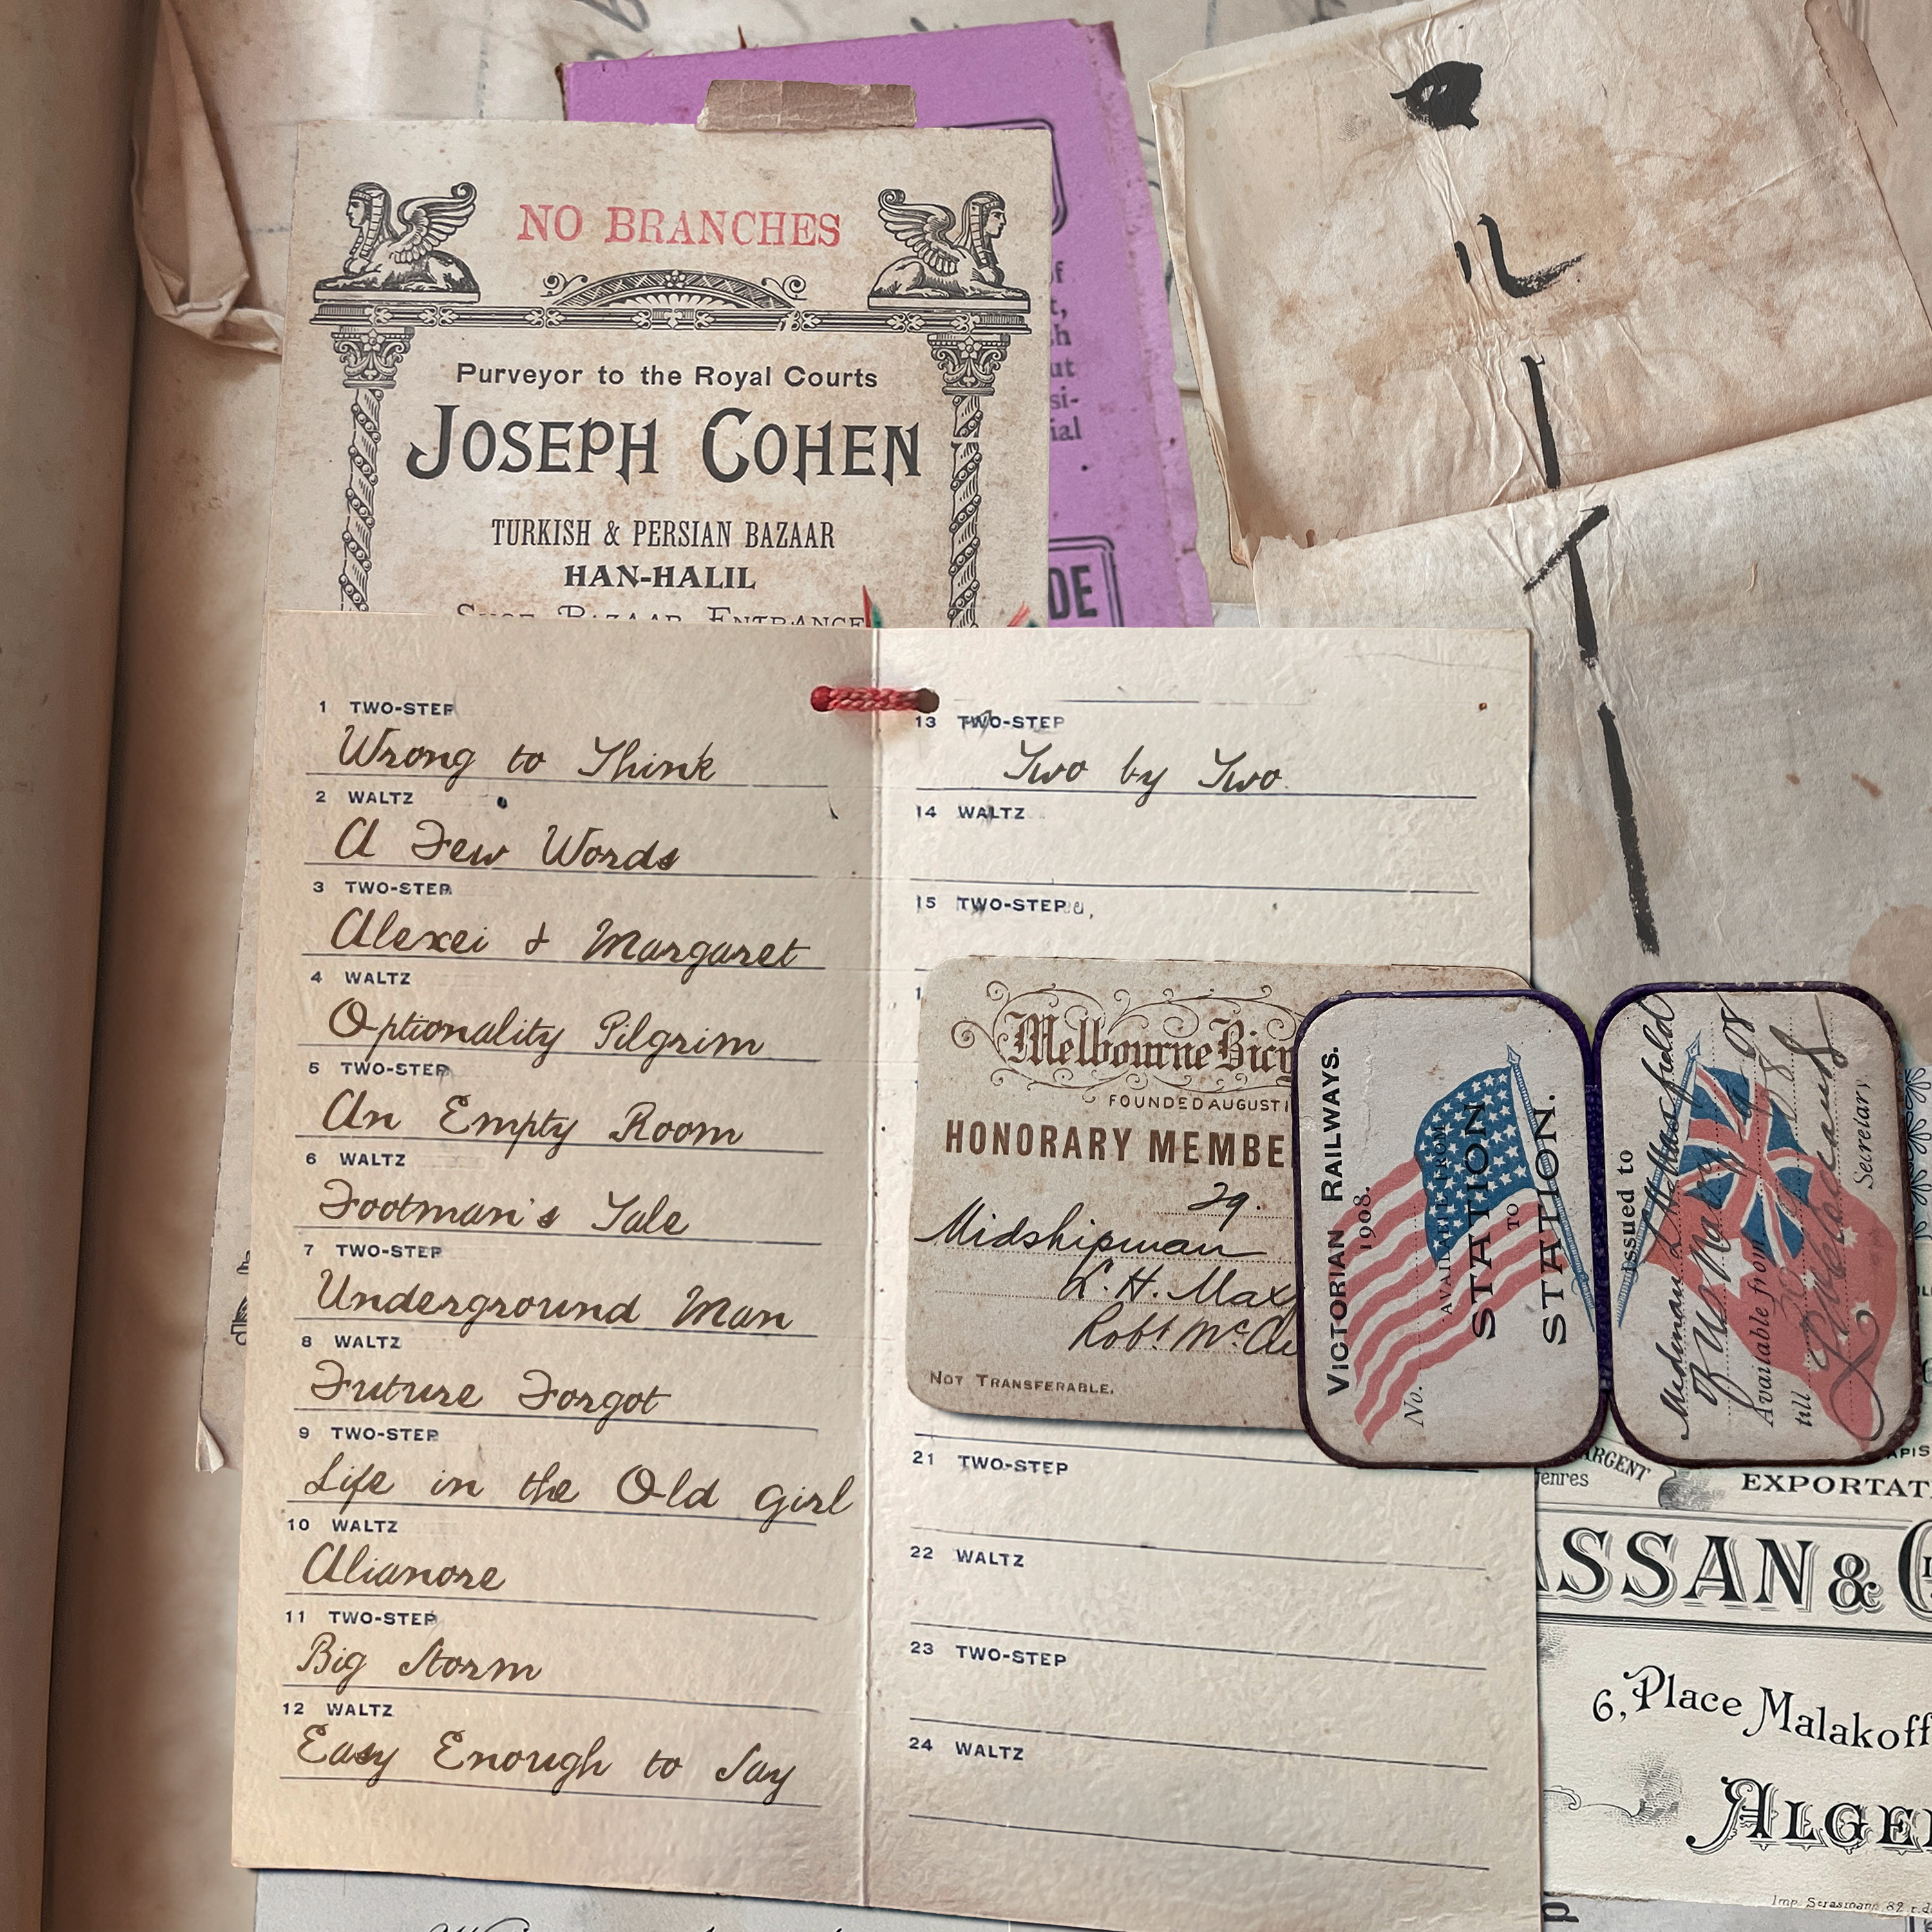 NO BRANCHES
Purveyor to the Royal Courts
JOSEPH COHEN
TURKISH & PERSIAN BAZAAR
HAN-HALIL
BAZAAR ENTRANCE
DE
1 TWO-STEP
Wrong to Think
2 WALTZ
A Few Words
3 TWO-STEP
Alexei & Margaret
4 WALTZ
Optionality Pilgrim
5 TWO-STEP
An Empty Room
6 WALTZ
Footman's Tale
7 TWO-STEP
Underground Man
8 WALTZ
Future Forgot
9 TWO-STEP
Life in the Old Girl
10 WALTZ
Alianore
11 TWO-STEP
Big Storm
12 WALTZ
Easy Enough to Say
13 TWO-STEP
Two by Two
14 WALTZ
15 TWO-STEP
Melbourne Bicy
FOUNDED AUGUST 1
HONORARY MEMBE
29.
Midshipman
L. H. Max
Robt McCl
NOT TRANSFERABLE.
VICTORIAN RAILWAYS.
1908.
No.
AVAILABLE FROM
STATION
TO
STATION.
Issued to
Midman
of US Navy
Available from
till
Secretary
21 TWO-STEP
22 WALTZ
23 TWO-STEP
24 WALTZ
ARGENT
genres
EXPORTAT
ASSAN & C
6, Place Malakoff
ALGE